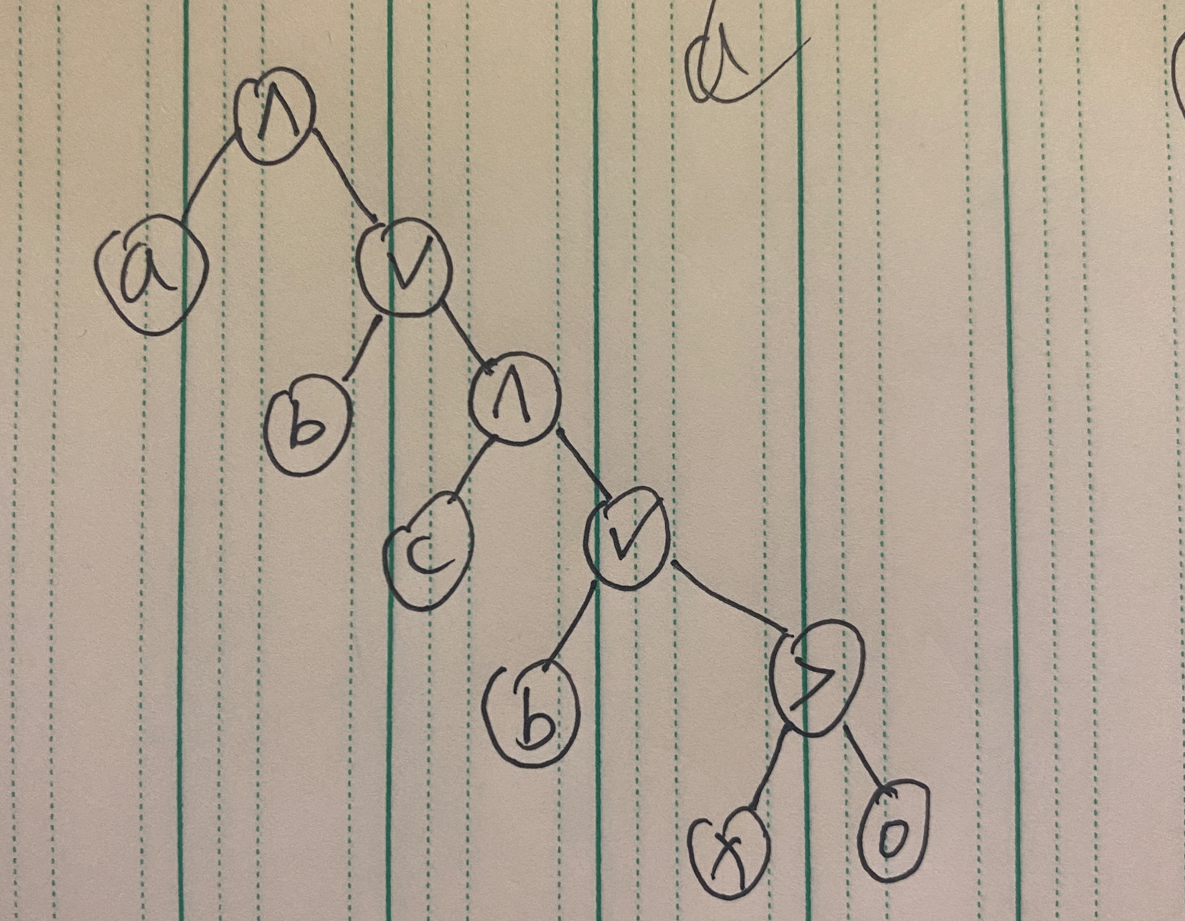 d
∧
a
∨
b
∧
c
∨
b
>
x
0